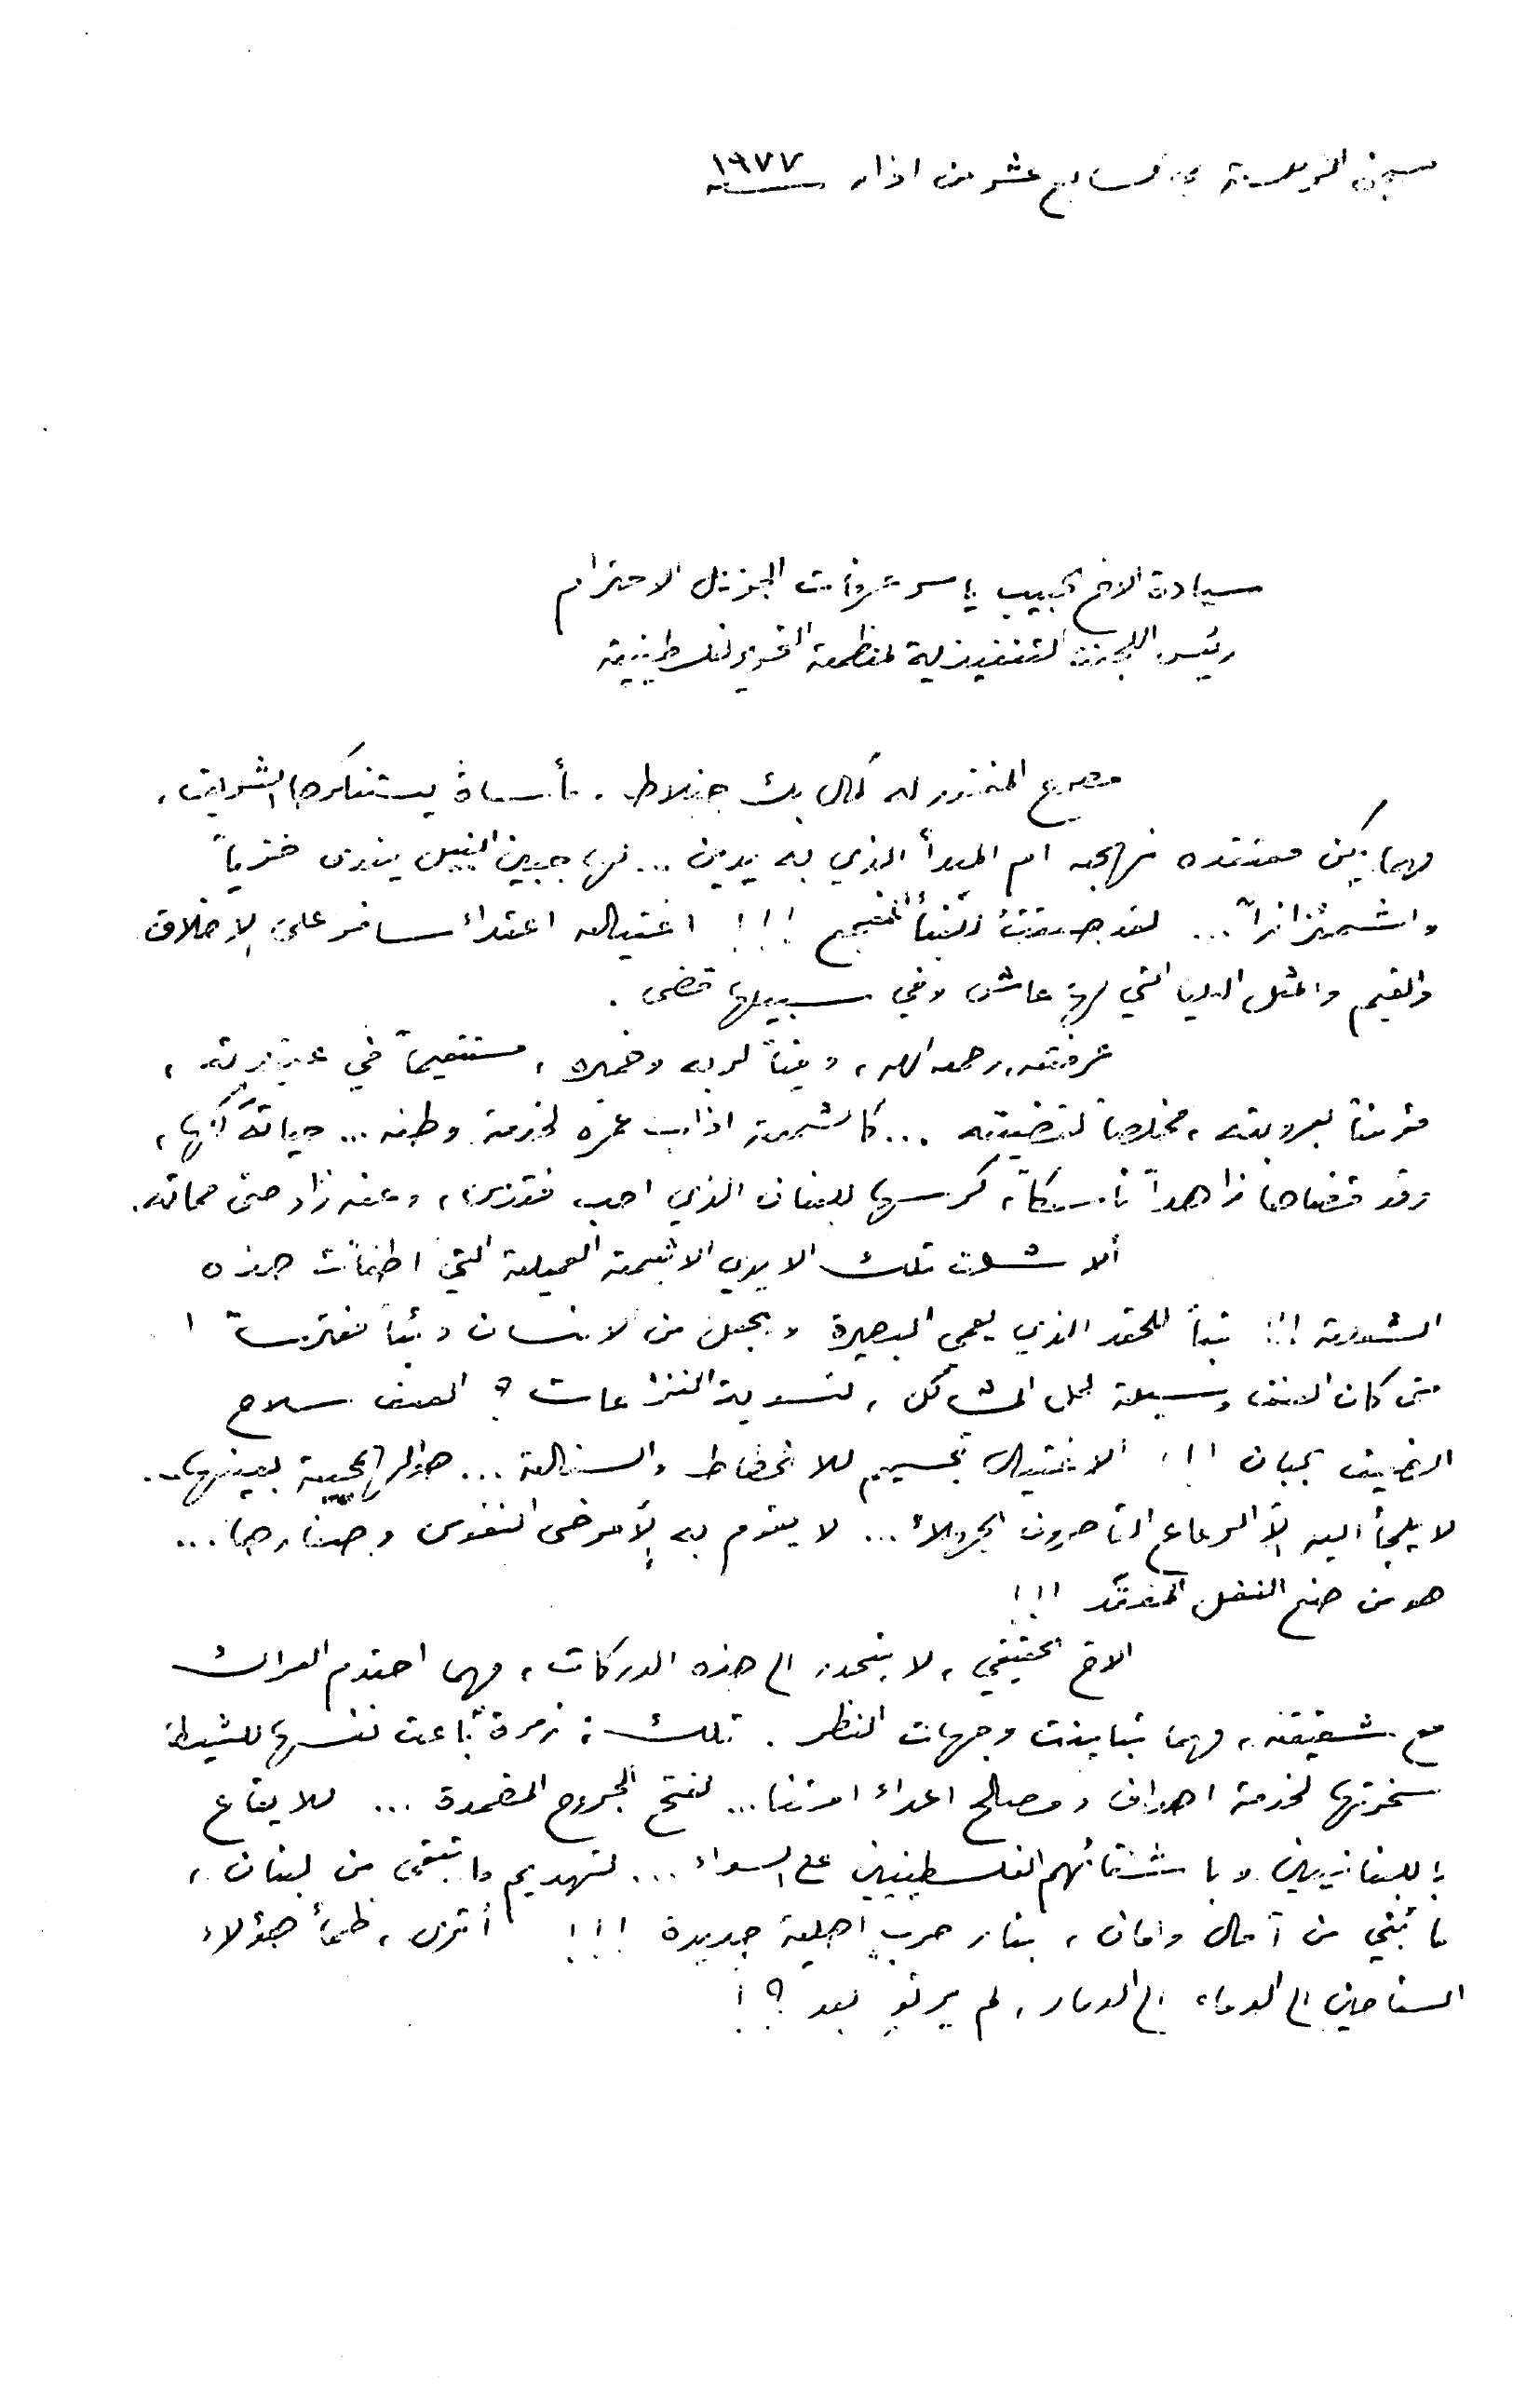 سجن الرملة في السابع عشر من اذار سنة ١٩٧٧
سيادة الاخ الحبيب ياسر عرفات الجزيل الاحترام
رئيس اللجنة التنفيذية لمنظمة التحرير الفلسطينية
مصرع المغفور له كمال بك جنبلاط، مأساة يستنكرها الشريف،
مهما يكن معتقده نهجه ام المبدأ الذي به يدين... لها جبين النبيل يندى خزياً
واشمئزازاً... لقد صعقت للنبأ المفجع !!! اغتياله اعتداء سافر على الاخلاق
والقيم والمثل العليا التي لها عاش وفي سبيلها قضى.
عرفته، رحمه الله، وفياً لربه وضميره، مستقيماً في عقيدته،
مؤمناً بعروبته، مخلصاً لقضيته... كالشمعة اذاب عمره لخدمة وطنه... حياته كلها،
وقد قضاها زاهداً ناسكاً، كرسها للبنان الذي احب فتفدى، وعنه زاد حتى مماته.
ألا شلت تلك الايدي الاثيمة العميلة التي اطفأت هذه
الشعلة !!! تباً للحقد الذي يعمي البصيرة ويجعل من الانسان ذئباً مفترساً !
متى كان العنف وسيلة لحل المشاكل، لتسوية النزاعات ؟ العنف سلاح
الضعيف الجبان !!! الاغتيال تجسيم للانحطاط والسفالة... هو الهمجية بعينها...
لا يلجأ اليه إلا الرعاع القاصرون الجهلاء... لا يقوم به إلا مرضى النفوس وصغارها...
هو من صنع النغل المعقّد !!!
الاخ الحقيقي، لا ينحدر الى هذه الدركات، مهما احتدم العراك
مع شقيقه، مهما تباينت وجهات النظر. تلك، زمرة باعت نفسها للشيطان
سخرتها لخدمة اهداف ومصالح اعداء امتنا... لفتح الجروح المضمدة... للايقاع
باللبنانيين وباشقائهم الفلسطينيين على السواء... لتهديم ما تبقى من لبنان،
ما بني من آمال وامان، بنار حربٍ اهلية جديدة !!! أترى، ظمأ هؤلاء
السفاحين الى الدماء الى الدمار، لم يرتوِ بعد ؟!